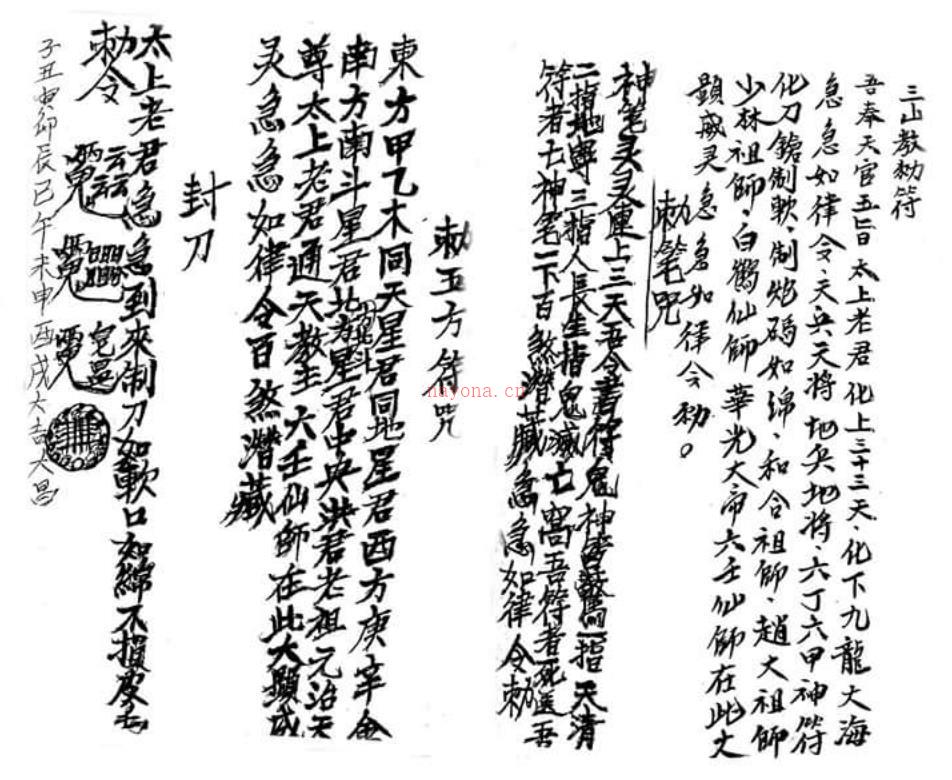 三山教勑符
吾奉天官五旨太上老君化上三十三天、化下九龍大海
急急如律令、天兵天將地兵地將、六丁六甲神符
化刀鎗制軟、制炮碼如綿、和合祖師、趙大祖師
少林祖師、白鶴仙師華光大帝六壬仙師在此大
顯威灵急急如律令勑。
勅笔咒
神笔灵灵運上三天吾令書符鬼神皆驚一指天清
二指地寧三指人長生指鬼滅亡窩吾符者死逢吾
符者亡神笔一下百煞潛藏急急如律令勅
勅五方符咒
東方甲乙木同天星君同地星君西方庚辛金
南方南斗星君北方星君中央洪君老祖元治天
尊太上老君通天教主六壬仙師在此大顯威
灵急急如律令百煞潛藏
封刀
太上老君急急到來制刀如軟口如綿不損皮毛
勅令
子丑寅卯辰巳午未申酉戌大吉大昌
nayona.cn